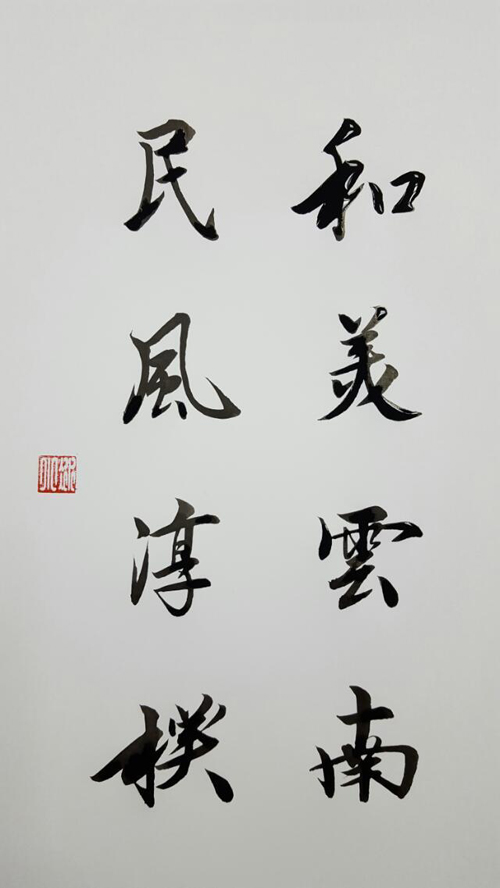 和美雲南
民風淳樸